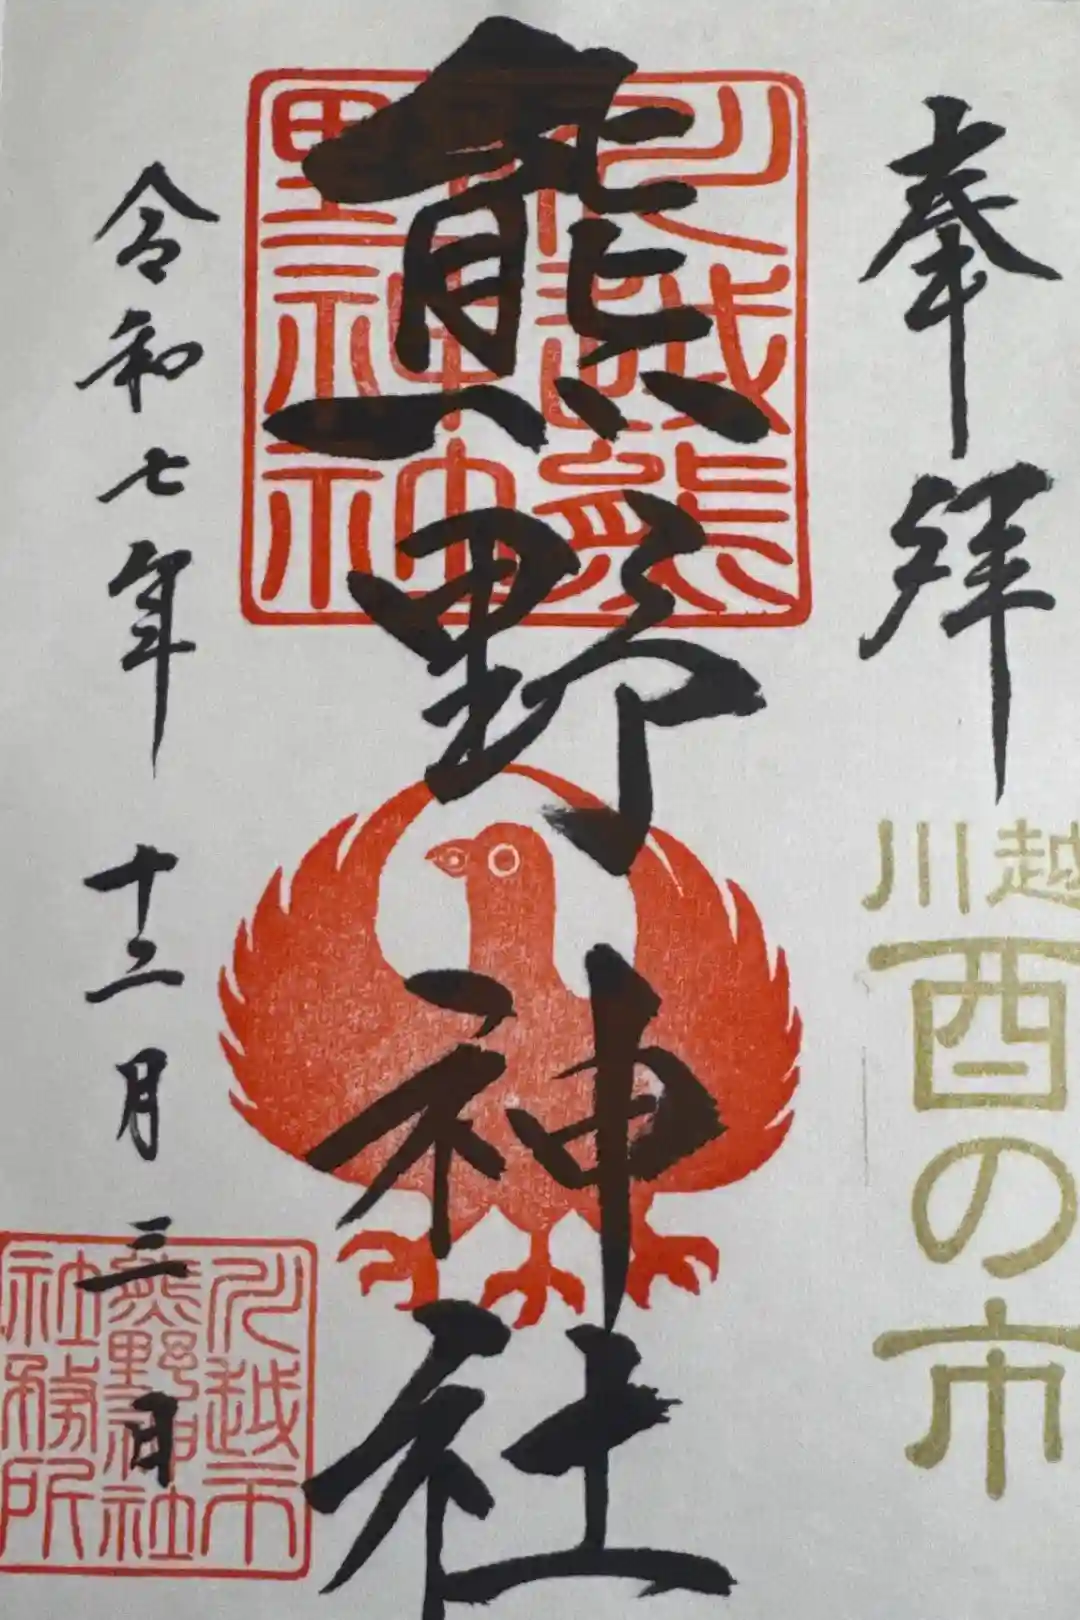 奉拝
川越
酉の市
熊野神社
川越熊
野神社
令和七年十二月三日
川越市
熊野神社
社務所